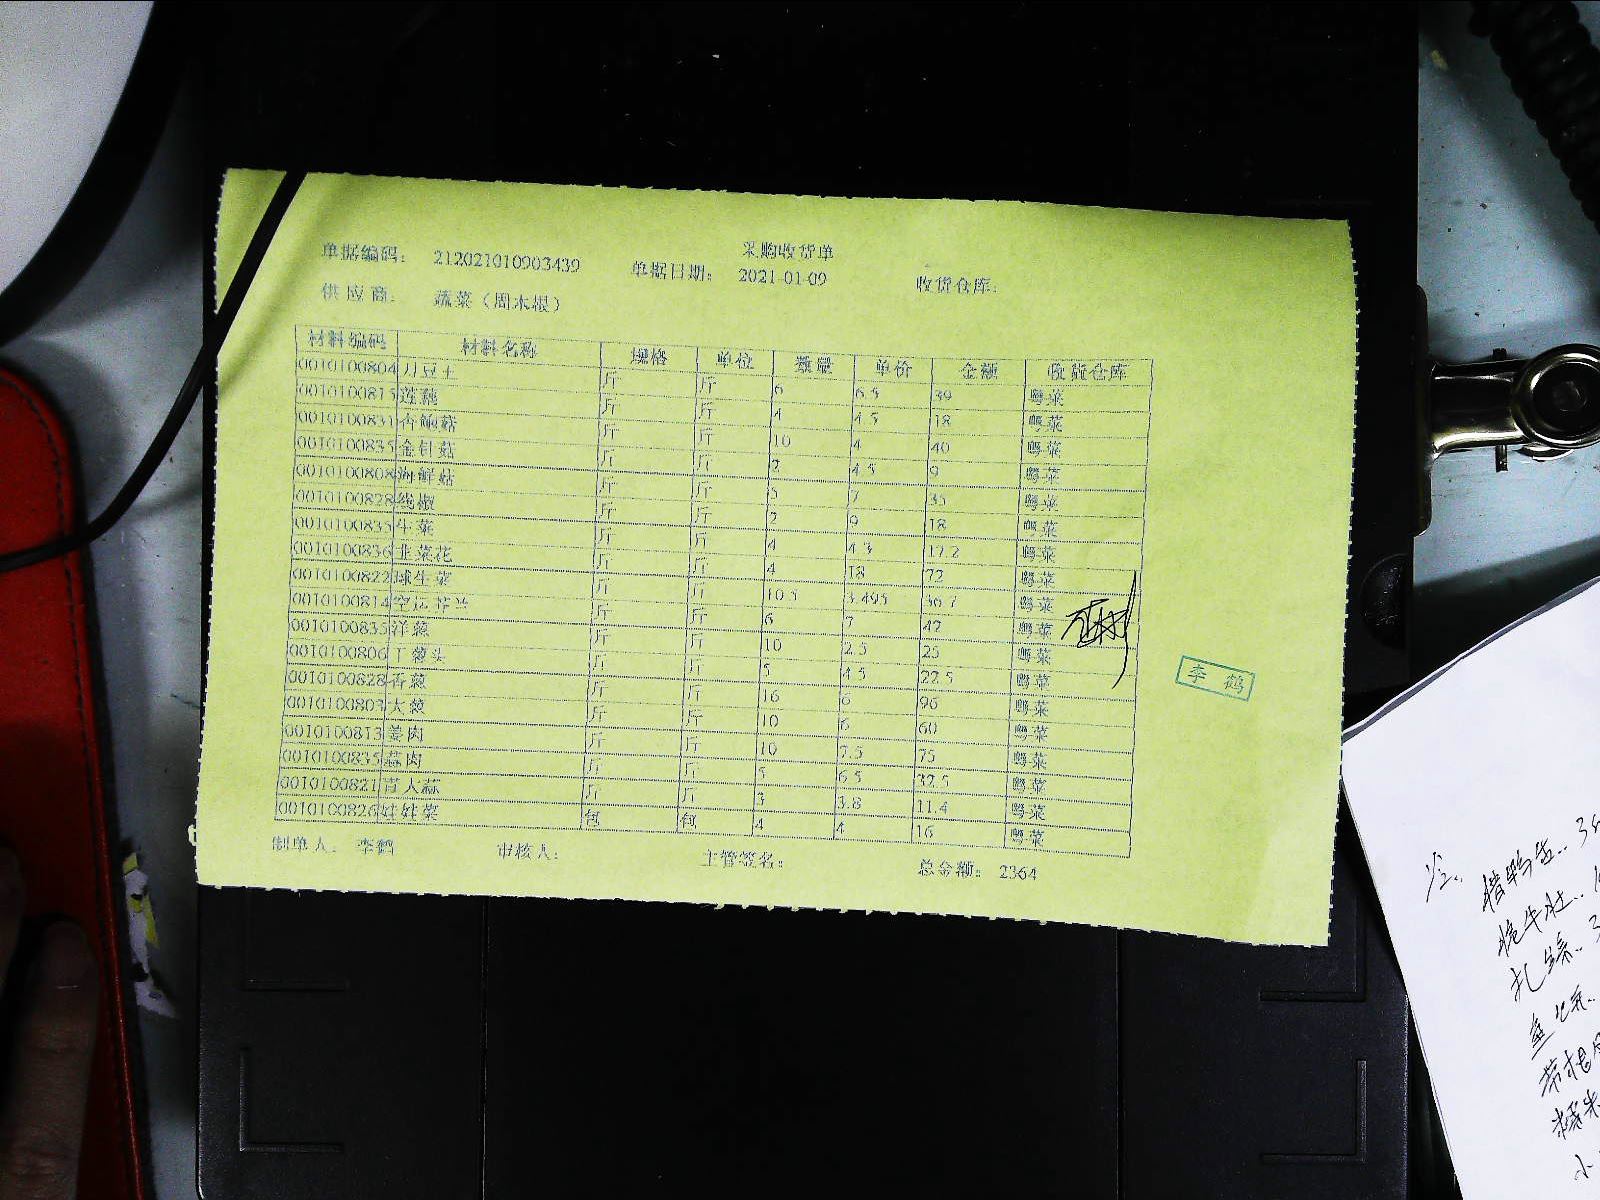 采购收货单
单据编码： 212021010903439 单据日期： 2021-01-09 收货仓库：
供应商： 蔬菜（周木根）
材料编码 材料名称 规格 单位 数量 单价 金额 收货仓库
0010100804 刀豆土 斤 斤 6 6.5 39 粤菜
0010100815 莲藕 斤 斤 4 4.5 18 粤菜
0010100831 杏鲍菇 斤 斤 10 4 40 粤菜
0010100835 金针菇 斤 斤 2 4.5 9 粤菜
0010100808 海鲜菇 斤 斤 5 7 35 粤菜
0010100828 线椒 斤 斤 2 9 18 粤菜
0010100835 生菜 斤 斤 4 4.3 17.2 粤菜
0010100836 韭菜花 斤 斤 4 18 72 粤菜
0010100822 球生菜 斤 斤 10.5 3.495 36.7 粤菜
0010100814 空运芥兰 斤 斤 6 7 42 粤菜
0010100835 洋葱 斤 斤 10 2.5 25 粤菜
0010100806 干葱头 斤 斤 5 4.5 22.5 粤菜
0010100828 香葱 斤 斤 16 6 96 粤菜
0010100803 大葱 斤 斤 10 6 60 粤菜
0010100813 姜肉 斤 斤 10 7.5 75 粤菜
0010100835 蒜肉 斤 斤 5 6.5 32.5 粤菜
0010100821 青大蒜 斤 斤 3 3.8 11.4 粤菜
0010100826 娃娃菜 包 包 4 4 16 粤菜
李鹤
制单人： 李鹤 审核人： 主管签名： 总金额： 2364